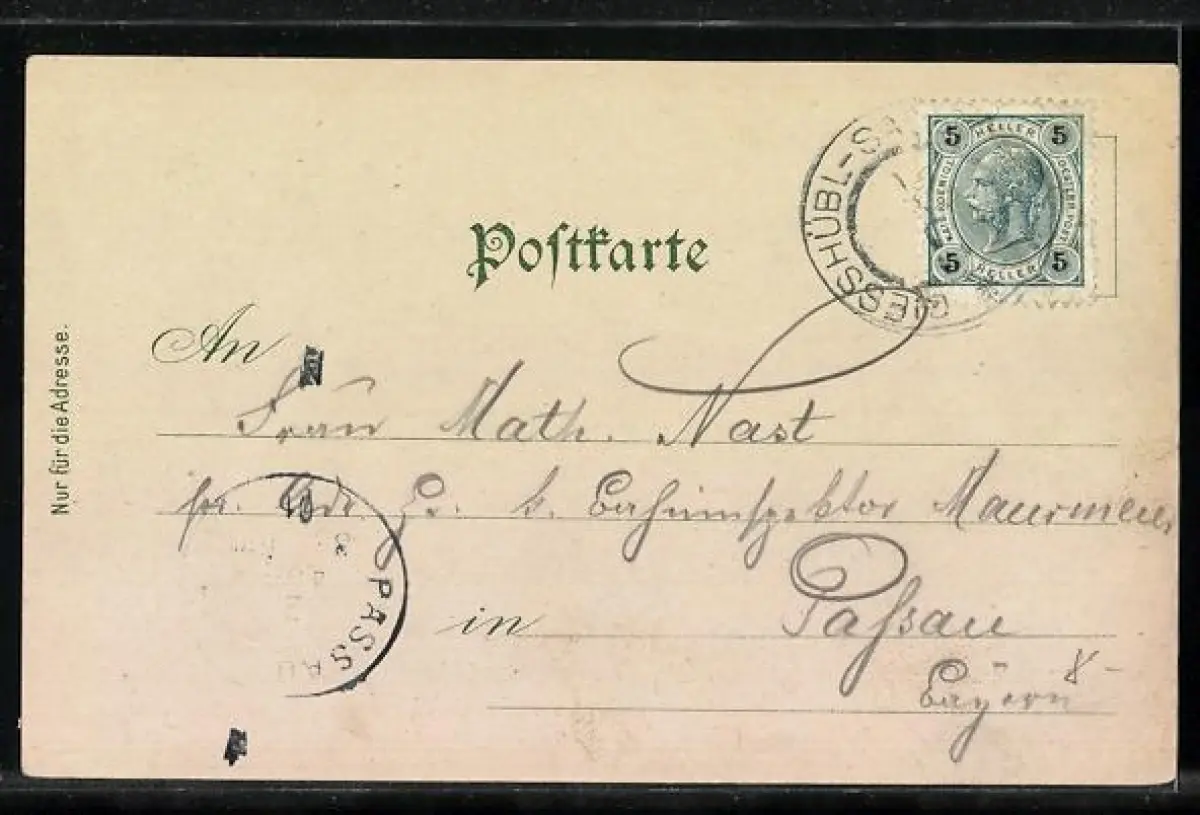 5 HELLER 5
KAIS. KOENIGL. OESTERR. POST.
5 HELLER 5
GIESSHÜBL-SA
Postkarte
An
Frau Math. Nast
pr. Adr. k. Bahninspektor Maurmeier
in Passau
Bayern
PASSAU
01
Nur für die Adresse.